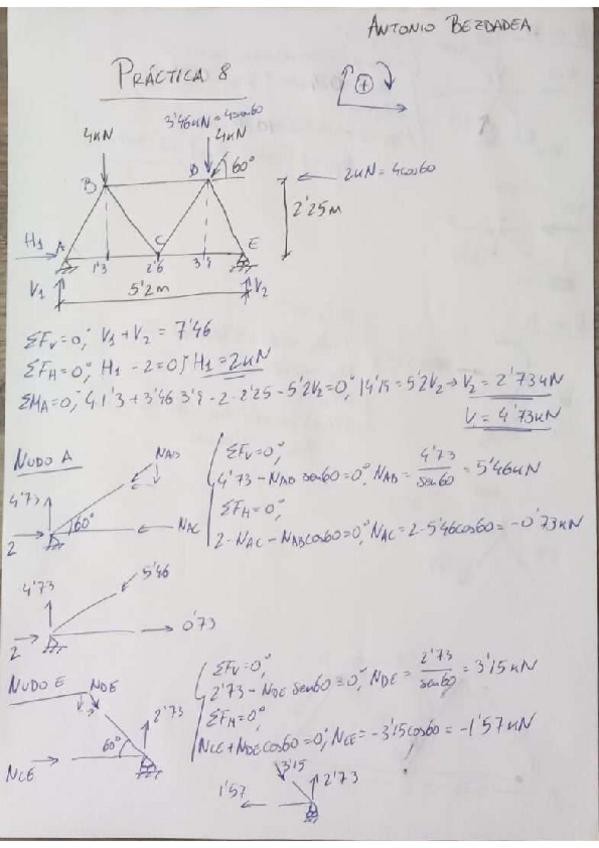 ANTONIO BEZDADEA
PRÁCTICA 8
+
3'46kN=4sen60
4kN 4kN
60°
2kN=4cos60
B D
2'25m
H1 A C E
1'3 2'6 3'9
V1 5'2m V2
ΣFV=0; V1+V2=7'46
ΣFH=0; H1-2=0; H1=2kN
ΣMA=0; 4·1'3+3'46·3'9-2·2'25-5'2V2=0; 14'19=5'2V2→V2=2'73kN
V=4'73kN
NUDO A
NAB
4'73
60°
NAC
2
ΣFV=0;
4'73-NAB sen60=0; NAB=4'73/sen60=5'46kN
ΣFH=0;
2-NAC-NABcos60=0; NAC=2-5'46cos60=-0'73kN
4'73 5'46
2 0'73
NUDO E NDE
2'73
60°
NCE
ΣFV=0;
2'73-NDE sen60=0; NDE=2'73/sen60=3'15kN
ΣFH=0;
NCE+NDEcos60=0; NCE=-3'15cos60=-1'57kN
3'15
1'57 2'73